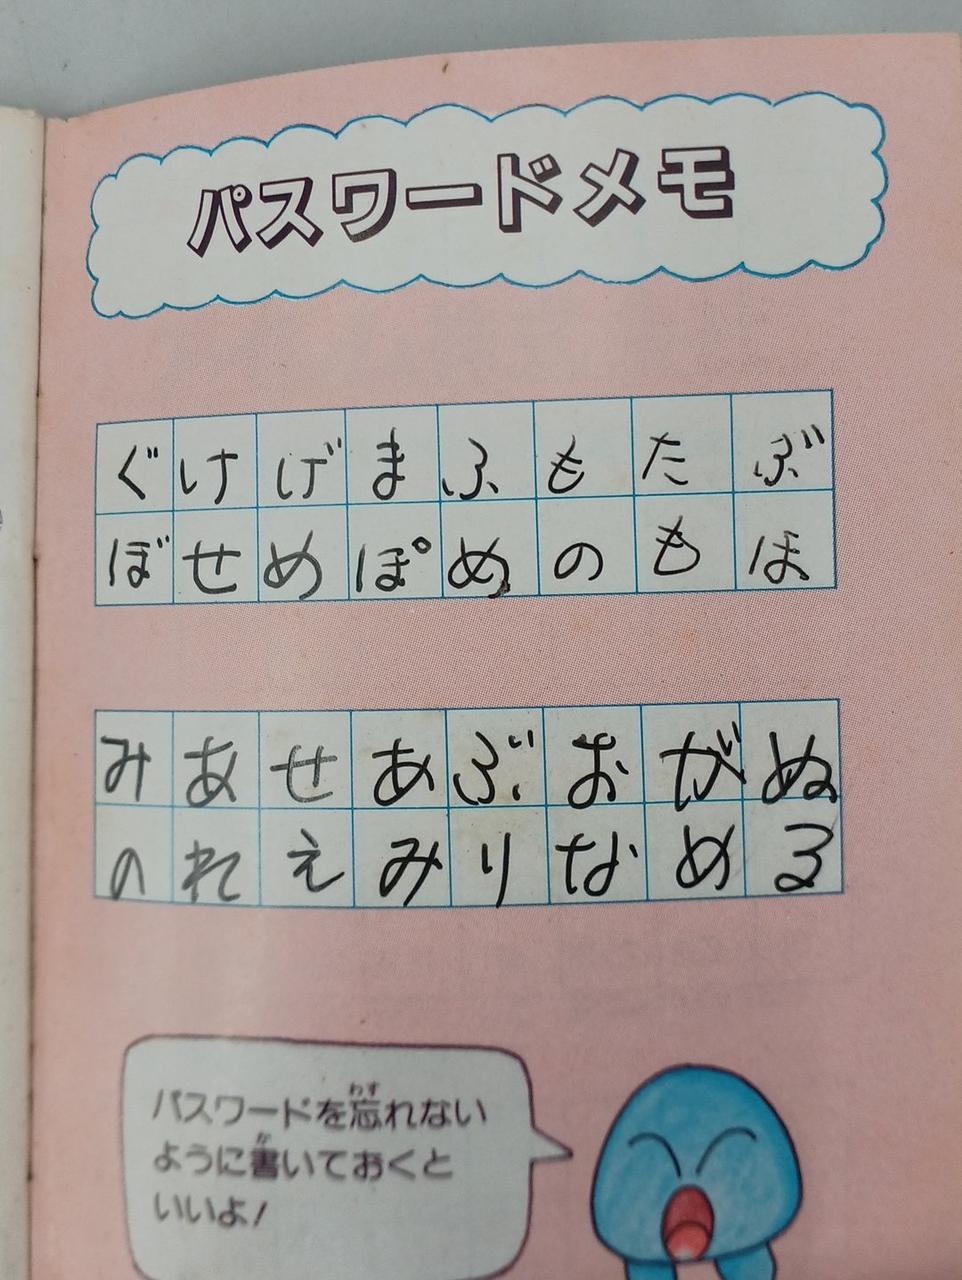 パスワードメモ
ぐけげまふもたぶ
ぼせめぽめのもほ
みあせあぶおがぬ
のれえみりなめる
パスワードを忘れない
わす
ように書いておくと
か
いいよ!